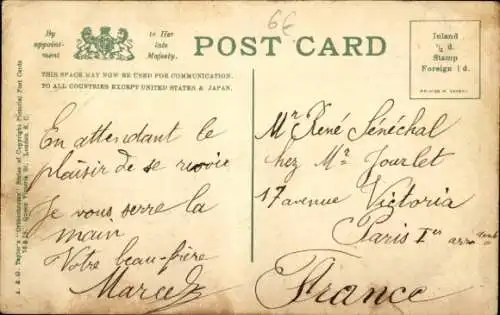 6€
By
appoint-
ment
to Her
late
Majesty.
POST CARD
Inland
½ d.
Stamp
Foreign 1 d.
THIS SPACE MAY NOW BE USED FOR COMMUNICATION
TO ALL COUNTRIES EXCEPT UNITED STATES & JAPAN.
A. & G. Taylor's "Orthochrome" Series of Copyright Pictorial Post Cards
Queen Victoria St., London E.C.
En attendant le
plaisir de se
Je vous serre la
main
Votre beau-frère
Marcel
Mr René Sénéchal
chez Mr Jourlet
17 avenue Victoria
Paris Ier
France